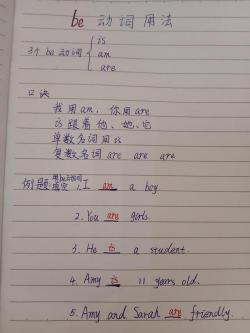 be 动词用法
3个 be 动词 { is
am
are
口诀
我用 am, 你用 are
is 跟着他、她、它
单数名词用 is
复数名词 are are are
例题: 用be动词填空 1. I am a boy.
2. You are girls.
3. He is a student.
4. Amy is 11 years old.
5. Amy and Sarah are friendly.